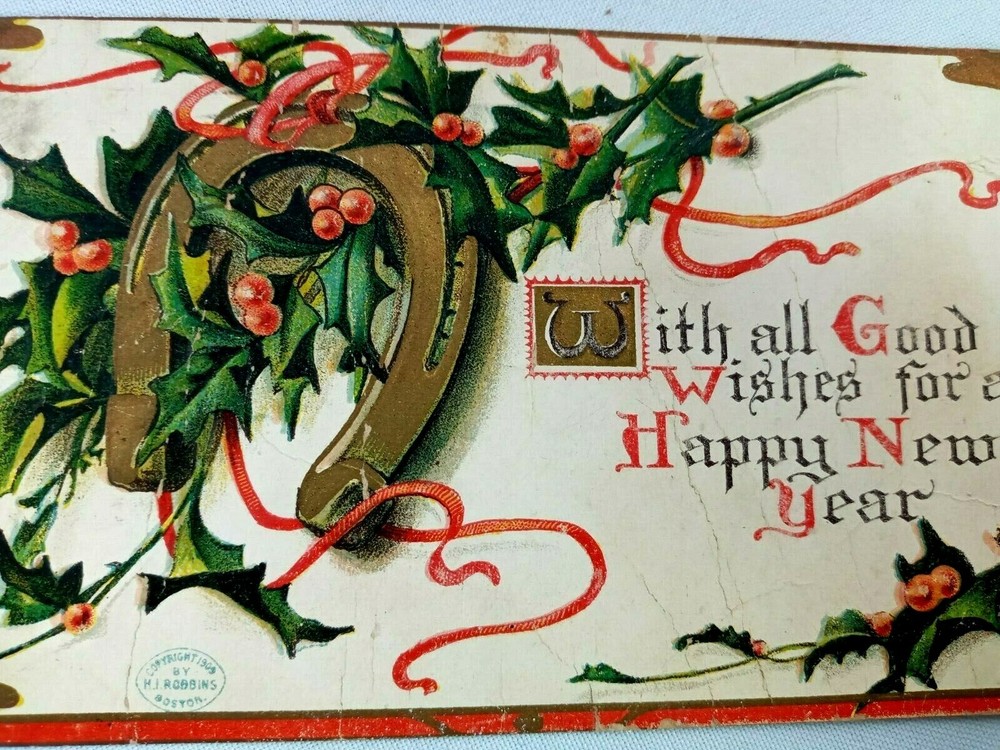 With all Good
Wishes for a
Happy New
Year
COPYRIGHT 1909
BY
H.I. ROBBINS
BOSTON.